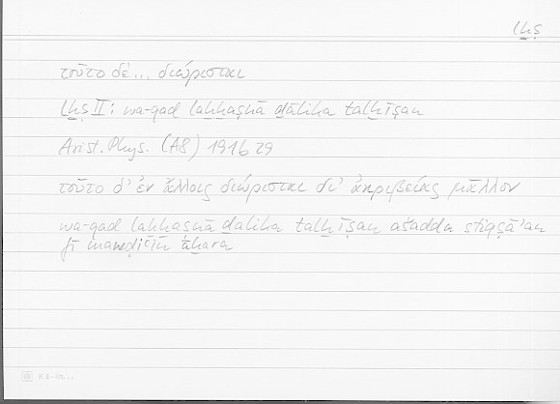 lḫṣ
τοῦτο δὲ... διώρισται
lḫṣ II: wa-qad laḫḫaṣnā ḏālika talḫīṣan
Arist. Phys. (A8) 191b29
τοῦτο δ' ἐν ἄλλοις διώρισται δι' ἀκριβείας μᾶλλον
wa-qad laḫḫaṣnā ḏalika talḫīṣan ašadda stiqṣā'an
fī mawḍiʿin āḫara